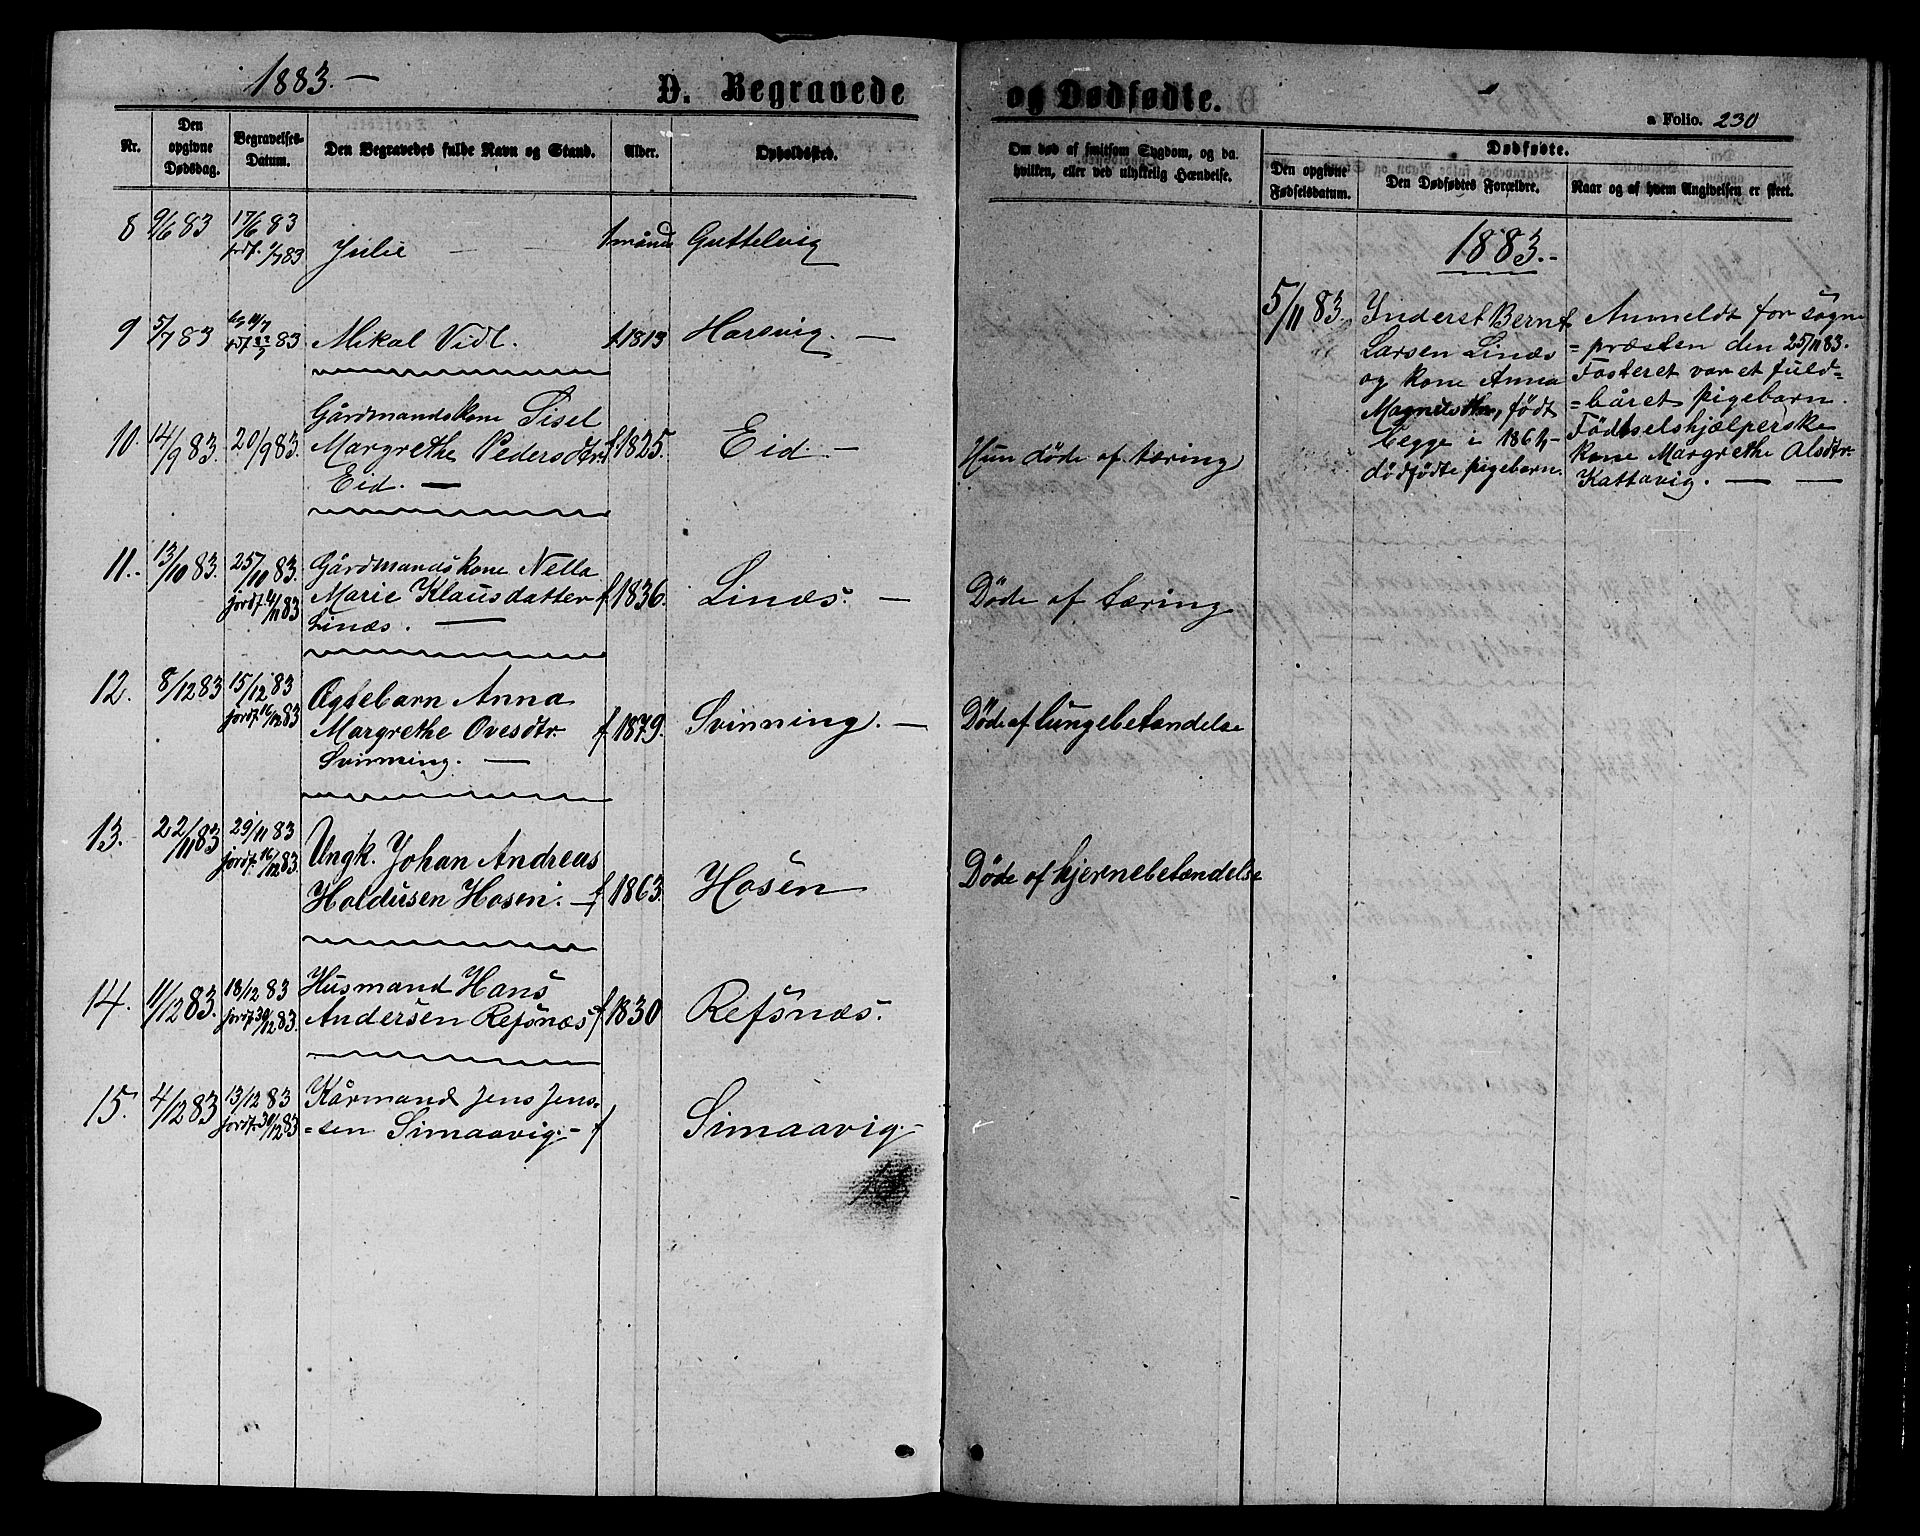 1883.—
D. Begravede
og Dødfødte.
a Folio. 230
Nr.
Den opgivne Dødsdag.
Begravelses-Datum.
Den Begravedes fulde Navn og Stand.
Alder.
Opholdssted.
Om død af smitsom Sygdom, og da hvilken, eller ved ulykkelig Hændelse.
Dødfødte.
Den opgivne Fødselsdatum.
Den Dødfødtes Forældre.
Naar og af hvem Angivelsen er skeet.
8 9/6 83 17/6 83 Julie — 1 måned Guttelvig
jordf. 1/7 83
9 5/7 83 83 Mikal Vidl. f. 1813 Harsvig. —
10. 14/9 83. 20/9 83. Gårdmandskone Sisel
Margrethe Pedersdtr. f. 1825. Eid. — Hun døde af tæring
Eid. —
11. 13/10 83. 25/10 83. Gårdmandskone Nella
jordf. 4/11 83 Marie Klausdatter f. 1836. Linæs. — Døde af tæring
Linæs. —
12. 8/12 83 15/12 83 Ægtebarn Anna
jordf. 16/12 83 Margrethe Ovesdtr f. 1879. Svinning. — Døde af lungebetændelse
Svinning. —
13. 22/11 83 29/11 83 Ungk. Johan Andreas
jordf. 16/12 83. Haldusen Hosen. — f. 1863. Hosen Døde af hjernebetændelse
14. 11/12 83. 18/12 83 Husmand Hans
jordf. 30/12 83. Andersen Refsnæs f. 1830 Refsnæs.
15. 4/12 83 13/12 83 Kårmand Jens Jens-
jordf. 30/12 83 =sen Simaavig. — f Simaavig. -
1883.-
5/11 83. Inderst Bernt
Larsen Linæs
og kone Anna
Magnusdtr, født
begge i 186
dødfødte pigebarn.
Anmeldt for sogne
=præsten den 25/11 83.
Fosteret var et fuld=
=båret pigebarn.
Fødselshjælperske
kone Margrethe Olsdtr.
Kattavig. — —